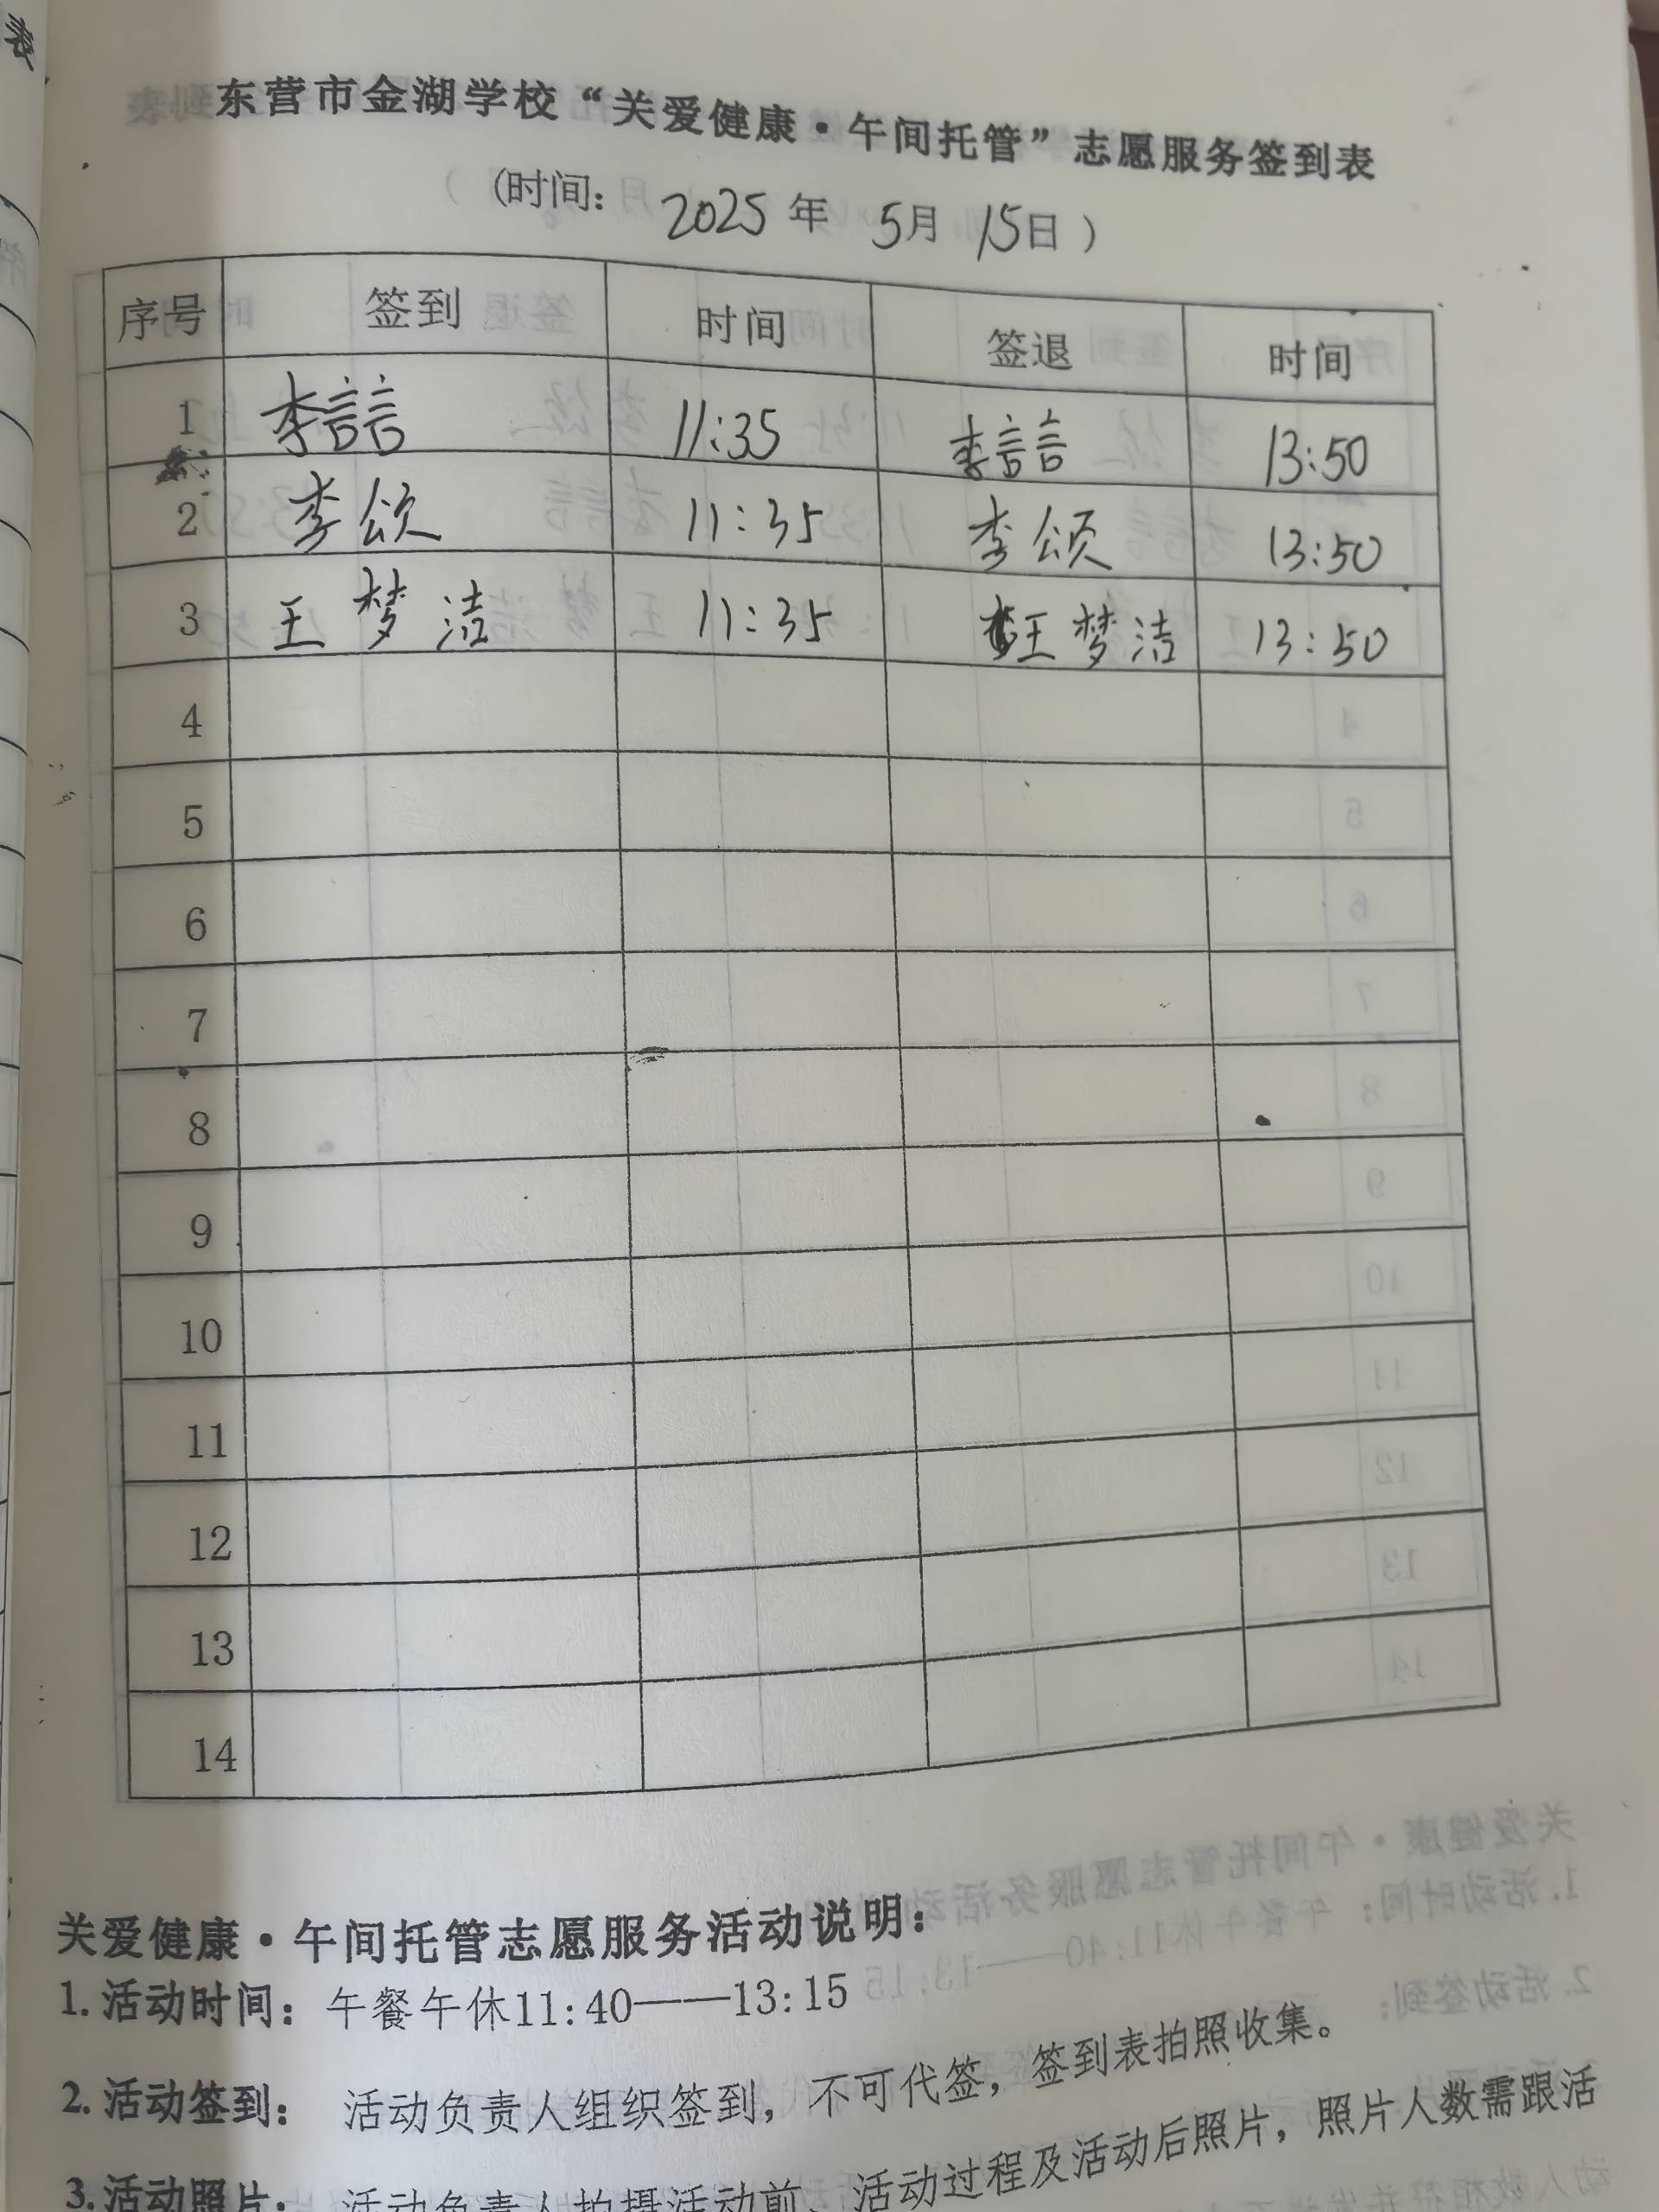 东营市金湖学校“关爱健康·午间托管”志愿服务签到表
(时间: 2025年 5月 15日)
序号 签到 时间 签退 时间
1 李言言 11:35 李言言 13:50
2 李颂 11:35 李颂 13:50
3 王梦洁 11:35 王梦洁 13:50
4
5
6
7
8
9
10
11
12
13
14
关爱健康·午间托管志愿服务活动说明:
1.活动时间: 午餐午休11:40——13:15
2.活动签到: 活动负责人组织签到，不可代签，签到表拍照收集。
3.活动照片: 活动负责人拍摄活动前、活动过程及活动后照片，照片人数需跟活